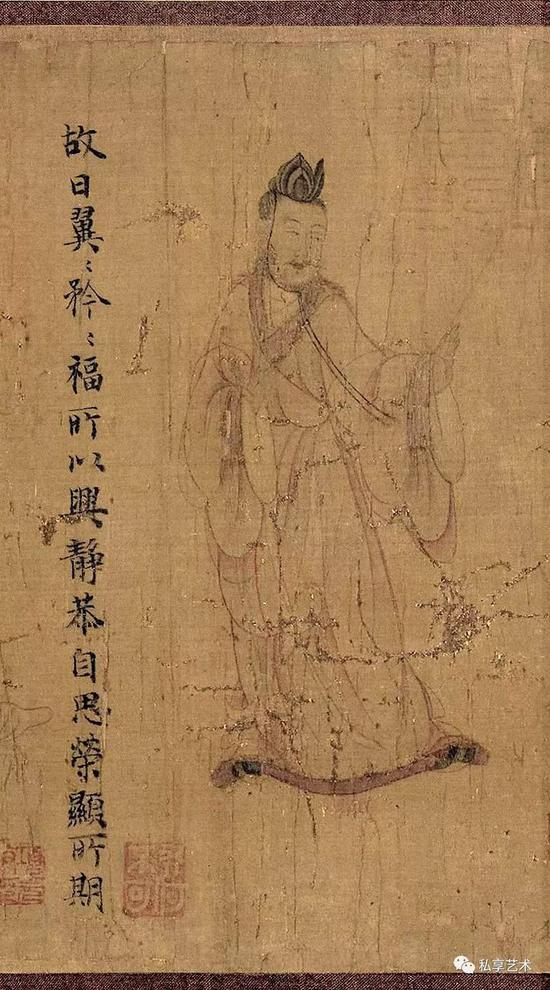 故曰翼〻矜〻福所以興靜恭自思榮顯所期
私享艺术